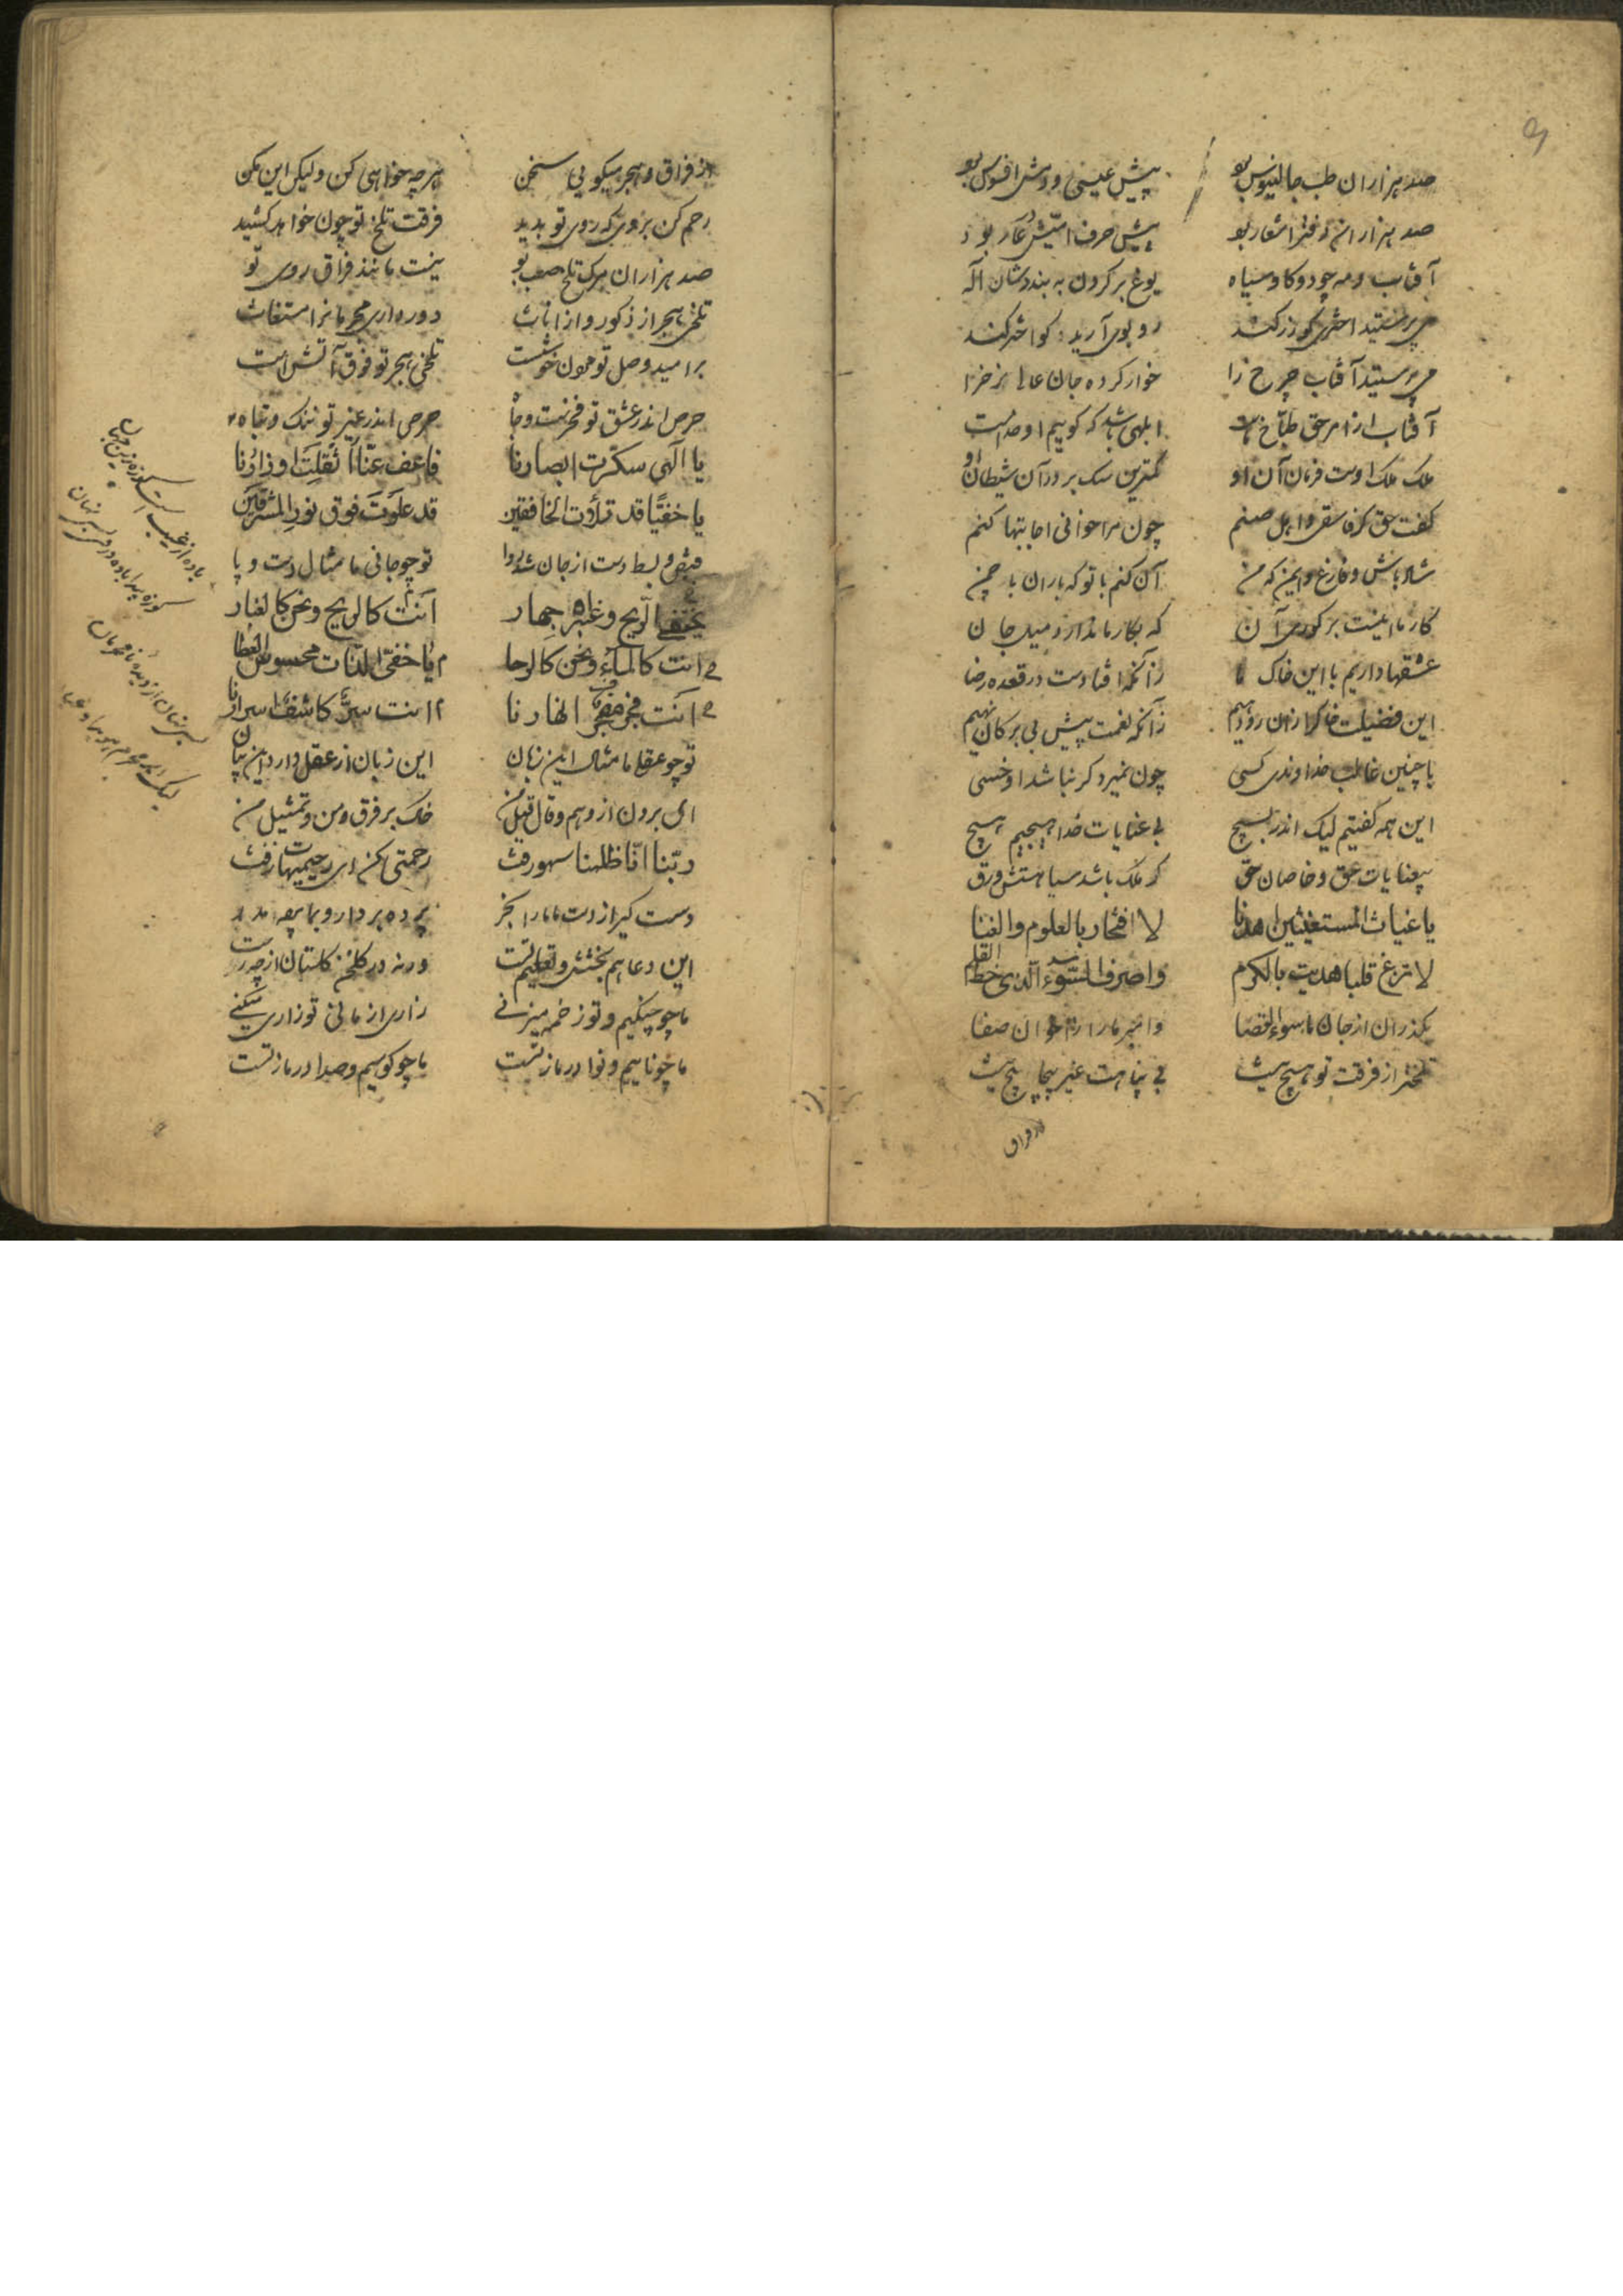 صد هزاران طب جالینوس بود پیش عیسی و دمش افسوس بود
صد هزاران دفتر اشعار بود پیش حرف امّیش عار بود
آفتاب و مه چو دو کاو سیاه یوغ بر کردن به بنددشان اله
می پرستید اختری کو زر کند رو بوی آرید کو اختر کند
می پرستید آفتاب چرخ را خوار کرده جان عالی نرخ را
آفتاب از امر حق طباخ ماست ابلهی باشد که کوییم او خداست
ملک ملک اوست فرمان آن او کمترین سک بر در آن شیطان او
کفت حق کر فاسقی و اهل صنم چون مرا خوانی اجابتها کنم
شاد باش و فارغ و ایمن که من آن کنم با تو که باران با چمن
کار ما اینست بر کوری آن که بکار ما ندارد میل جان
عشقها داریم با این خاک ما زآنکه افتادست در قعده رضا
این فضیلت خاک را زان رو دهیم زآنکه نعمت پیش بی برکان نهیم
با چنین غالب خداوندی کسی چون نمیرد کر نباشد او خسی
این همه کفتیم لیک اندر بسیچ بی عنایات خدا هیچیم هیچ
بیعنایات حق و خاصان حق کر ملک باشد سیاهستش ورق
یا غیاث المستغیثین اهدنا لا افتخار بالعلوم والغنا
لا تزغ قلبا هدیت بالکرم واصرف السوء الذی خط القلم
بکذران از جان ما سوء القضا وامبر ما را ز اخوان صفا
تلختر از فرقت تو هیچ نیست بی پناهت غیر پیچاپیچ نیست
از فراق
از فراق و هجر میکویی سخن هرچه خواهی کن ولیکن این مکن
رحم کن بر وی که روی تو بدید فرقت تلخ تو چون خواهد کشید
صد هزاران مرک تلخ صعب تو نیست مانند فراق روی تو
تلخی هجر از ذکور و از اناث دور دار ای مجرمانرا مستغاث
بر امید وصل تو مردن خوشست تلخی هجر تو فوق آتش است
حرص اندر عشق تو فخرست و جاه حرص اندر غیر تو ننک و تباه
یا الهی سکرت ابصارنا فاعف عنّا اثقلت اوزارنا
یا خفیّا قد ملأت الخافقین قد علوت فوق نور المشرقین
قبض و بسط دست از جان شد روا تو چو جانی ما مثال دست و پا
یختفی الریح و غبره جهار انت کالریح و نحن کالغبار
انت کالماء و نحن کالرحا یا خفی الذات محسوس العطا
انت فجر مفجر انهارنا انت سرّ کاشف اسرارنا
تو چو عقلی ما مثال این زبان این زبان از عقل دارد این بیان
ای برون از وهم و قال و قیل من خاک بر فرق من و تمثیل من
ربّنا انّا ظلمنا سهو رفت رحمتی کن ای رحیمیهات زفت
دست کیر از دست ما ما را بخر پرده بردار و
این دعا هم بخشش و تعلیم تست ورنه در کلخن کلستان از چه رست
ما چو چنکیم و تو زخمه میزنی زاری از ما نی تو زاری میکنی
ما چو ناییم و نوا در ما ز تست ما چو کوهیم و صدا در ما ز تست
باده از غیب است کوزه زین جهان
کوزه پیدا باده در وی بس نهان
بس نهان از دیده نامحرمان
لیک بر محرم هویدا و عیان